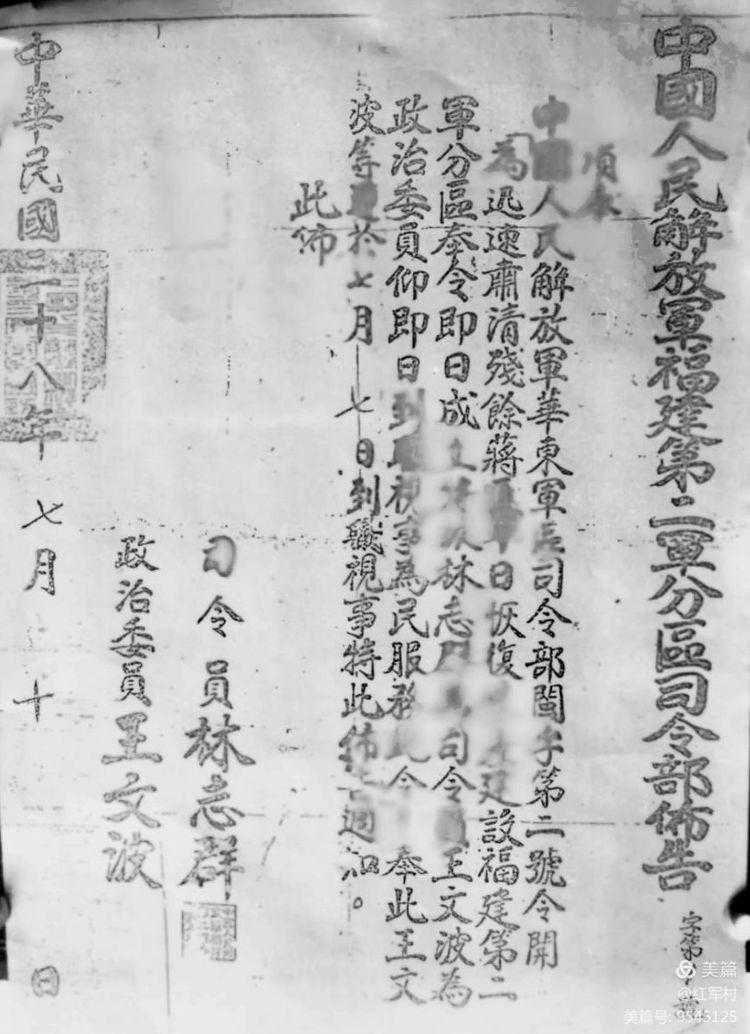 中國人民解放軍福建第二軍分區司令部佈告
字第
頃奉
中國人民解放軍華東軍區司令部閩字第二號令開
為迅速肅清殘餘蔣 日恢復 建設福建第二
軍分區奉令即日成立 林志群為司令員王文波為
政治委員仰即日到職視事為民服務此令 奉此王文
波等遵於七月七日到職視事特此佈告週知。
此佈
司令員林志群
政治委員王文波
中華民國三十八年七月十 日
美篇
@红军村
美篇号: 9545125